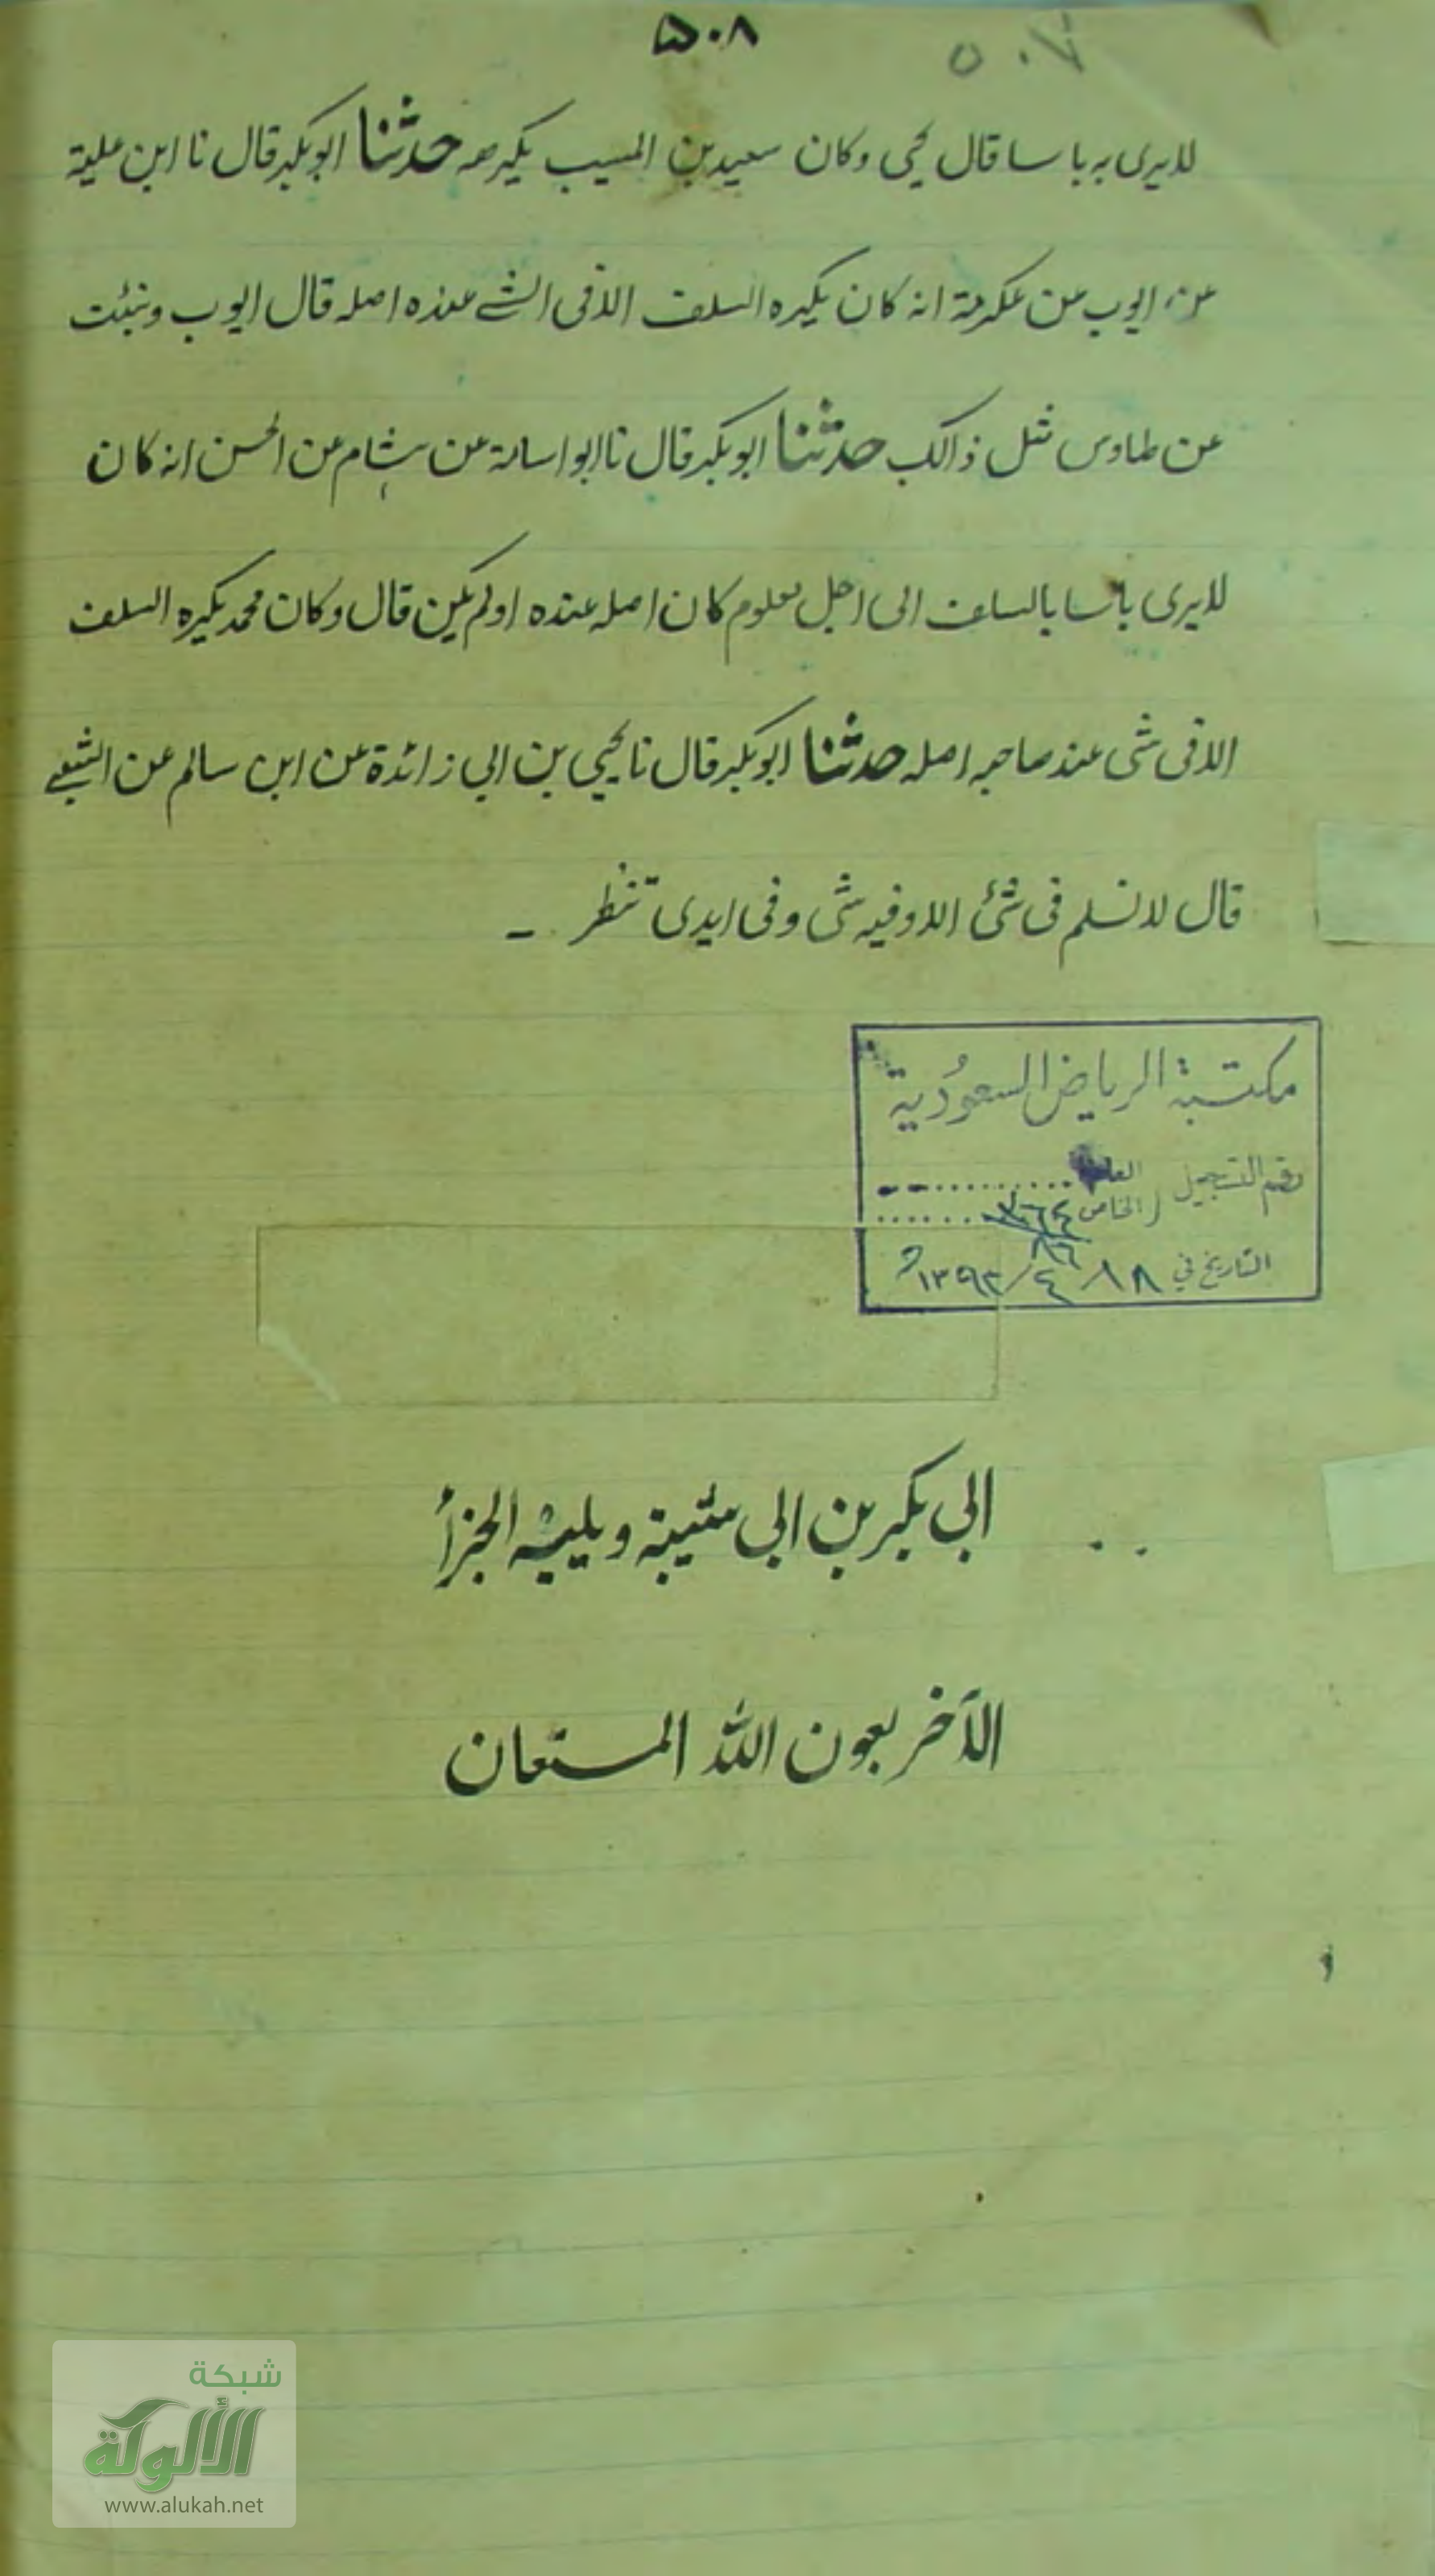 ۵۰۸
٥٠٧
لا یری به باسا قال یحی وکان سعید بن المسیب یکرهه حدثنا ابو بکر قال نا ابن علیة
عن ایوب عن عکرمة انه کان یکره السلف الا فی الشے عنده اصله قال ایوب ونبئت
عن طاوس مثل ذالک حدثنا ابو بکر قال نا ابو اسامة عن ہشام عن الحسن انه کان
لا یری باسا بالسلف الی اجل معلوم کان اصله عنده او لم یکن قال وکان محمد یکره السلف
الا فی شی عند صاحبه اصله حدثنا ابو بکر قال نا یحیی بن ابی زائدة عن ابن سالم عن الشعبے
قال لا تسلم فی شئ الا وفیه شی وفی ایدی تنظر ـ
مكتبة الرياض السعودية
رقم التسجيل العام
الخاص
٨٦
التاريخ في ١٨/٤/١٣٩٢ه
ابی بکر بن ابی شیبة ویلیه الجزأ
الآخر بعون اللّٰه المستعان
شبكة
الألوكة
www.alukah.net